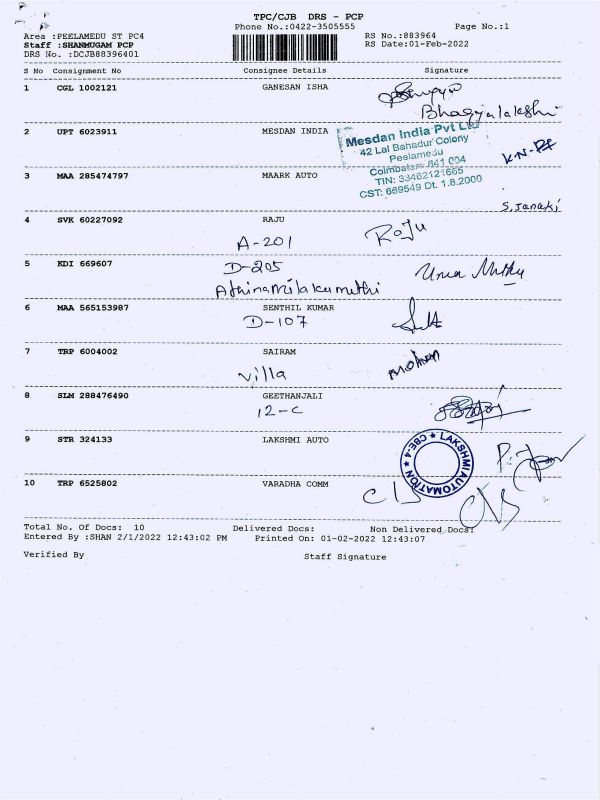 TPC/CJB DRS - PCP
Phone No.:0422-3505555 Page No.:1
Area :PEELAMEDU ST PC4 RS No.:883964
Staff :SHANMUGAM PCP RS Date:01-Feb-2022
DRS No. :DCJB88396401
S No Consignment No Consignee Details Signature
1 CGL 1002121 GANESAN ISHA
Bhagyalakshi
2 UPT 6023911 MESDAN INDIA
Mesdan India Pvt Ltd
42 Lal Bahadur Colony
Peelamedu
Coimbatore 641 004
TIN: 33462121665
CST: 669549 Dt. 1.8.2000
3 MAA 285474797 MAARK AUTO
S. Janaki
4 SVK 60227092 RAJU
A-201 Raju
5 KDI 669607 D-205 Uma Muthu
6 MAA 565153987 SENTHIL KUMAR
D-107
7 TRP 6004002 SAIRAM
Villa Mohan
8 SLM 288476490 GEETHANJALI
12-C
9 STR 324133 LAKSHMI AUTO
LAKSHMI AUTOMATION ★ CBE-4 ★
10 TRP 6525802 VARADHA COMM
Total No. Of Docs: 10 Delivered Docs: Non Delivered Docs:
Entered By :SHAN 2/1/2022 12:43:02 PM Printed On: 01-02-2022 12:43:07
Verified By Staff Signature